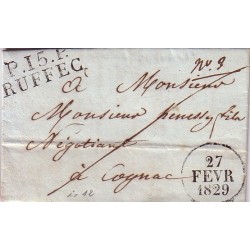 P.15.P.
RUFFEC
No. 9
A Monsieur
Monsieur fils
Négotiant
à Cognac
27
FEVR
1829